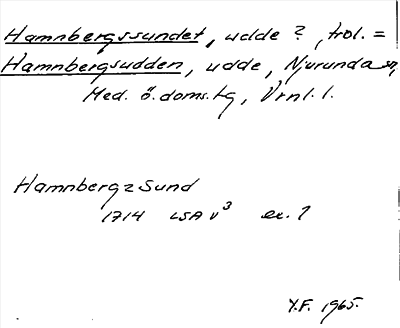 Hamnbergssundet, udde ?, trol. =
Hamnbergsudden, udde, Njurunda sn,
Med. ö. doms.tg, Vrnl. l.
Hamnbergz Sund
1714 LSA V³ ex. 1
Y.F. 1965.